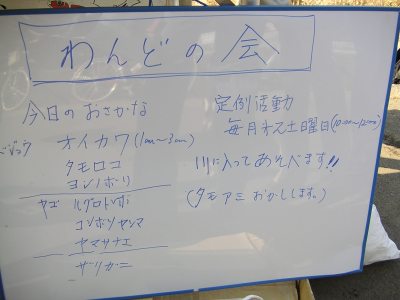 わんどの会
今日のおさかな
ドジョウ オイカワ(1cm~3cm)
タモロコ
ヨシノボリ
ヤゴ ハグロトンボ
コシボソヤンマ
ヤマサナエ
ザリガニ
定例活動
毎月第2土曜日(10:00~12:00)
川に入ってあそべます!!
(タモアミおかしします。)